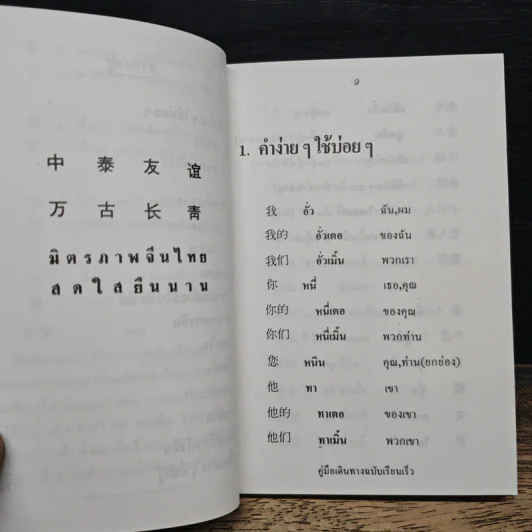 中 泰 友 谊
万 古 长 青
มิตรภาพจีนไทย
สดใสยืนนาน
๑
1. คำง่าย ๆ ใช้บ่อย ๆ
我 อั่ว ฉัน,ผม
我的 อั่วเตอ ของฉัน
我们 อั่วเมิ้น พวกเรา
你 หนี่ เธอ,คุณ
你的 หนี่เตอ ของคุณ
你们 หนี่เมิ้น พวกท่าน
您 หนิน คุณ,ท่าน(ยกย่อง)
他 ทา เขา
他的 ทาเตอ ของเขา
他们 ทาเมิ้น พวกเขา
คู่มือเดินทางฉบับเรียนเร็ว